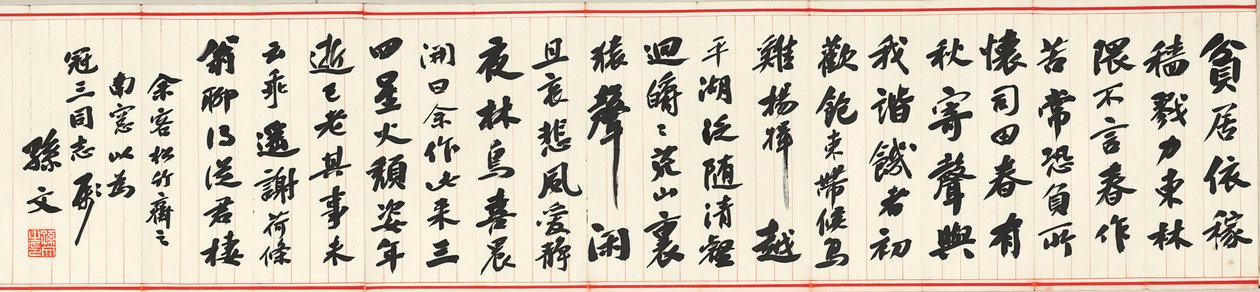 貧居依稼
穡戮力東林
隈不言春作
苦常恐負所
懷司田春有
秋寄聲與
我諧饑者初
歡飽束帶候鳥
雞揚楫越
平湖泛隨清壑
迴皭〻荒山裏
猿聲閑
且哀悲風愛靜
夜林鳥喜晨
開曰余作此來三
四星火頹姿年
逝已老其事未
云乖遙謝荷條
翁聊得從君棲
余客松竹齋之
南窓以為
冠三同志
孫文
孫文之印